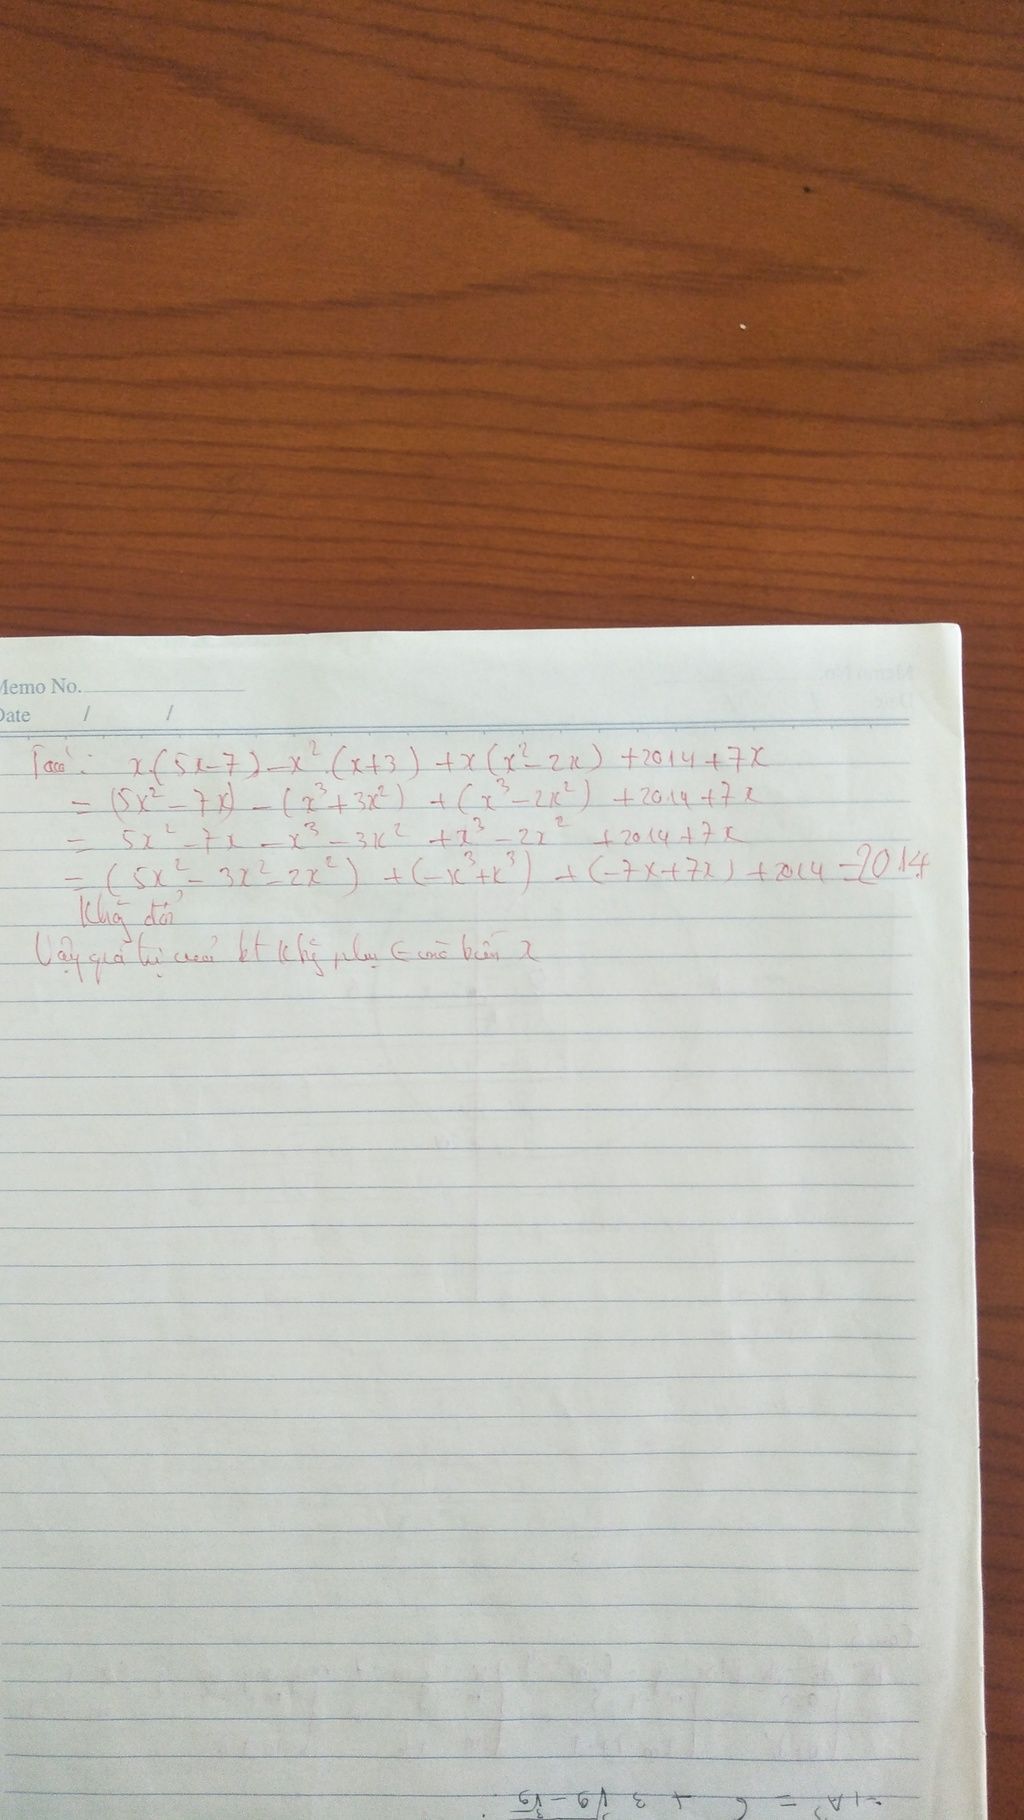 Memo No.
Date / /
Ta có: x.(5x-7)-x².(x+3)+x(x²-2x)+2014+7x
= (5x²-7x)-(x³+3x²)+(x³-2x²)+2014+7x
= 5x²-7x-x³-3x²+x³-2x²+2014+7x
= (5x²-3x²-2x²)+(-x³+x³)+(-7x+7x)+2014=2014
Khg đổi
Vậy giá trị của bt khg phụ ∈ vào biến x